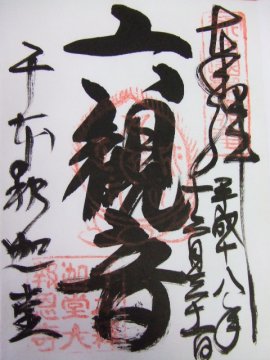 奉拝
平成十八年
十二月三十一日
六観音
千本釈迦堂